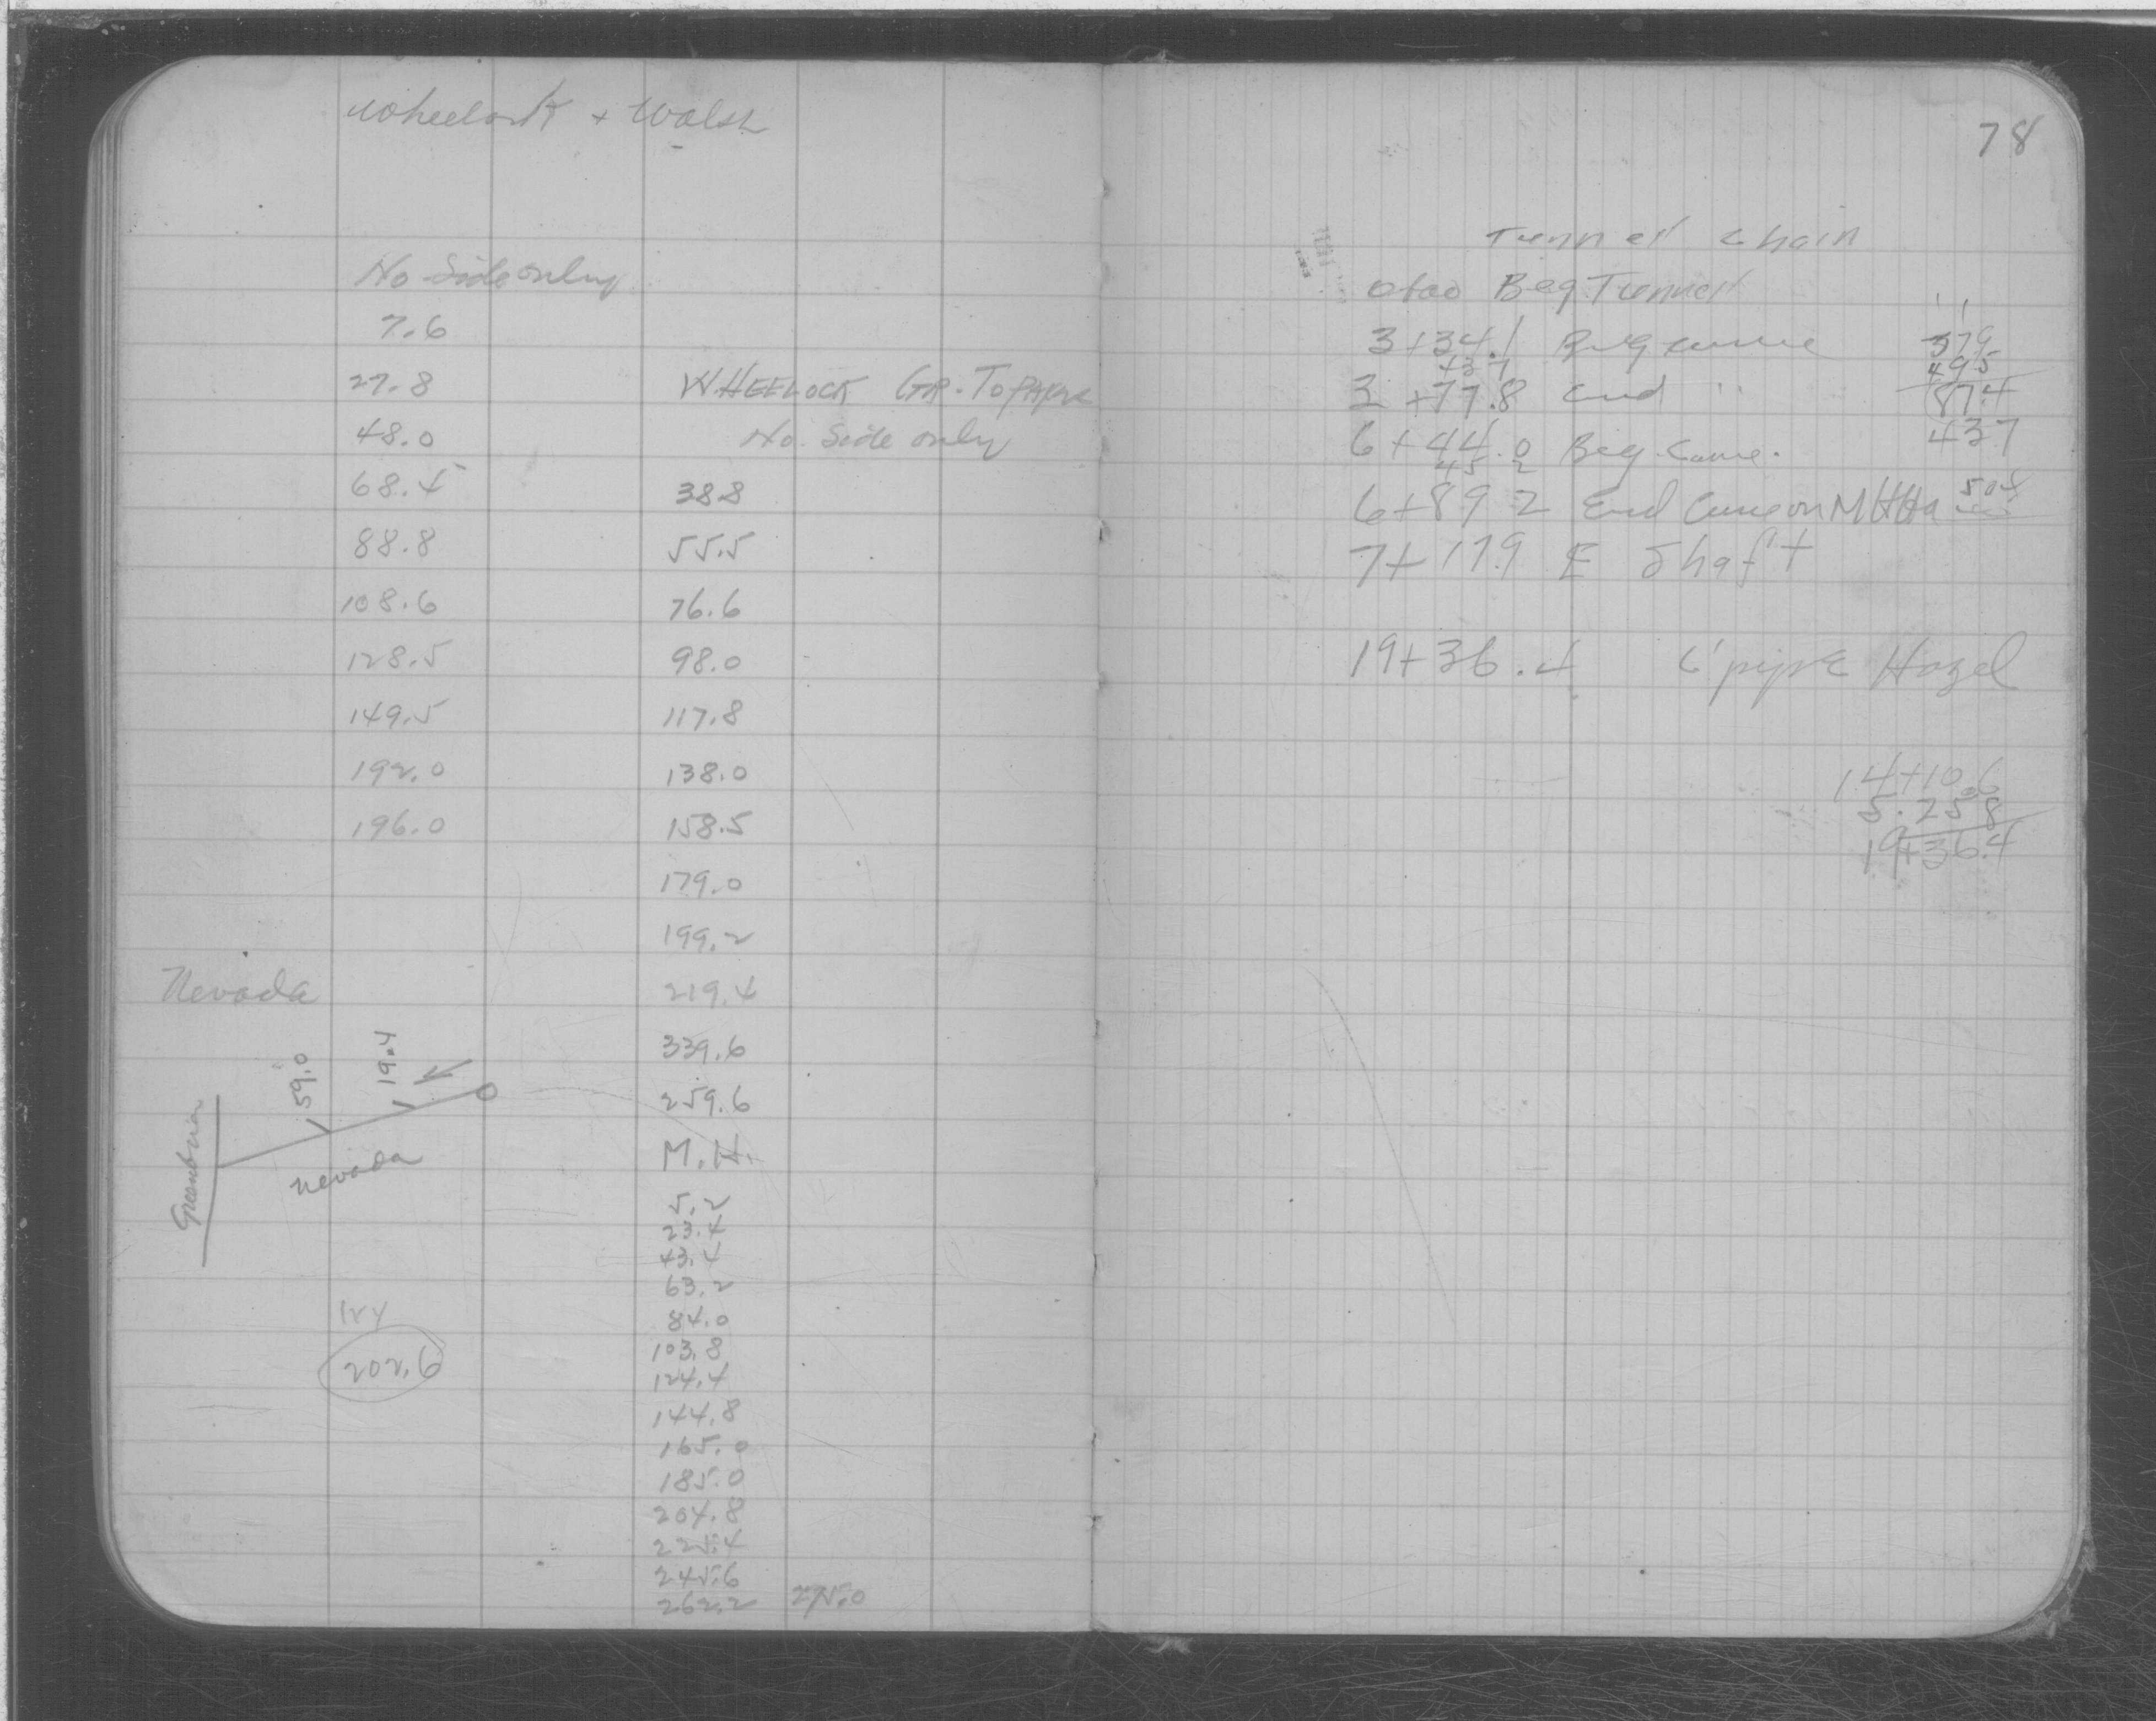 Wheelock + Walsh
No Side only
7.6
27.8
48.0
68.4
88.8
108.6
128.5
149.5
192.0
196.0
WHEELOCK GR. TO
No. Side only
38.8
55.5
76.6
98.0
117.8
138.0
158.5
179.0
199.2
219.4
339.6
259.6
M.H.
5.2
23.4
43.4
63.2
84.0
103.8
124.4
144.8
165.0
185.0
204.8
225.4
245.6
262.2 275.0
Nevada
59.0
19.4
Greenbrier
Nevada
124
202.6
78
Tunnel Chain
0+00 Beg Tunnel
3+34.1 Beg curve
379
495
874
437
3+77.8 End "
6+44.0 Beg. Curve.
45 2
6+89 2 End Curve on MH
7+17.9 E Shaft
19+36.4 6' pipe Hazel
14+10.6
5.25.8
19+36.4